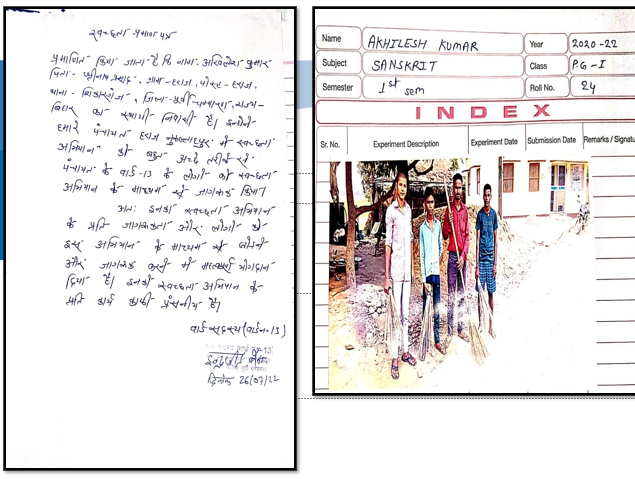 स्वच्छता प्रमाण पत्र
प्रमाणित किया जाता है कि नाम- अखिलेश कुमार
पिता- प्रसाद, ग्राम- हराज, पोस्ट- हराज,
थाना- , जिला- पूर्वी-चम्पारण, राज्य-
बिहार का स्थायी निवासी है। इन्होंने
हमारे पंचायत हराज में स्वच्छता
अभियान को बहुत अच्छे तरीके से
पंचायत के वार्ड-13 के लोगों को स्वच्छता
अभियान के माध्यम से जागरूक किया।
अतः इनका स्वच्छता अभियान
के प्रति जागरूकता और लोगों को
इस अभियान के माध्यम से
और जागरूक करने में महत्वपूर्ण योगदान
दिया है। इनकी स्वच्छता अभियान के
प्रति कार्य काफी है।
वार्ड सदस्य (वार्ड न०-13)
दिनांक 26/07/22
Name AKHILESH KUMAR Year 2020-22
Subject SANSKRIT Class P.G-I
Semester 1st sem Roll No. 24
INDEX
Sr. No. Experiment Description Experiment Date Submission Date Remarks / Signatu